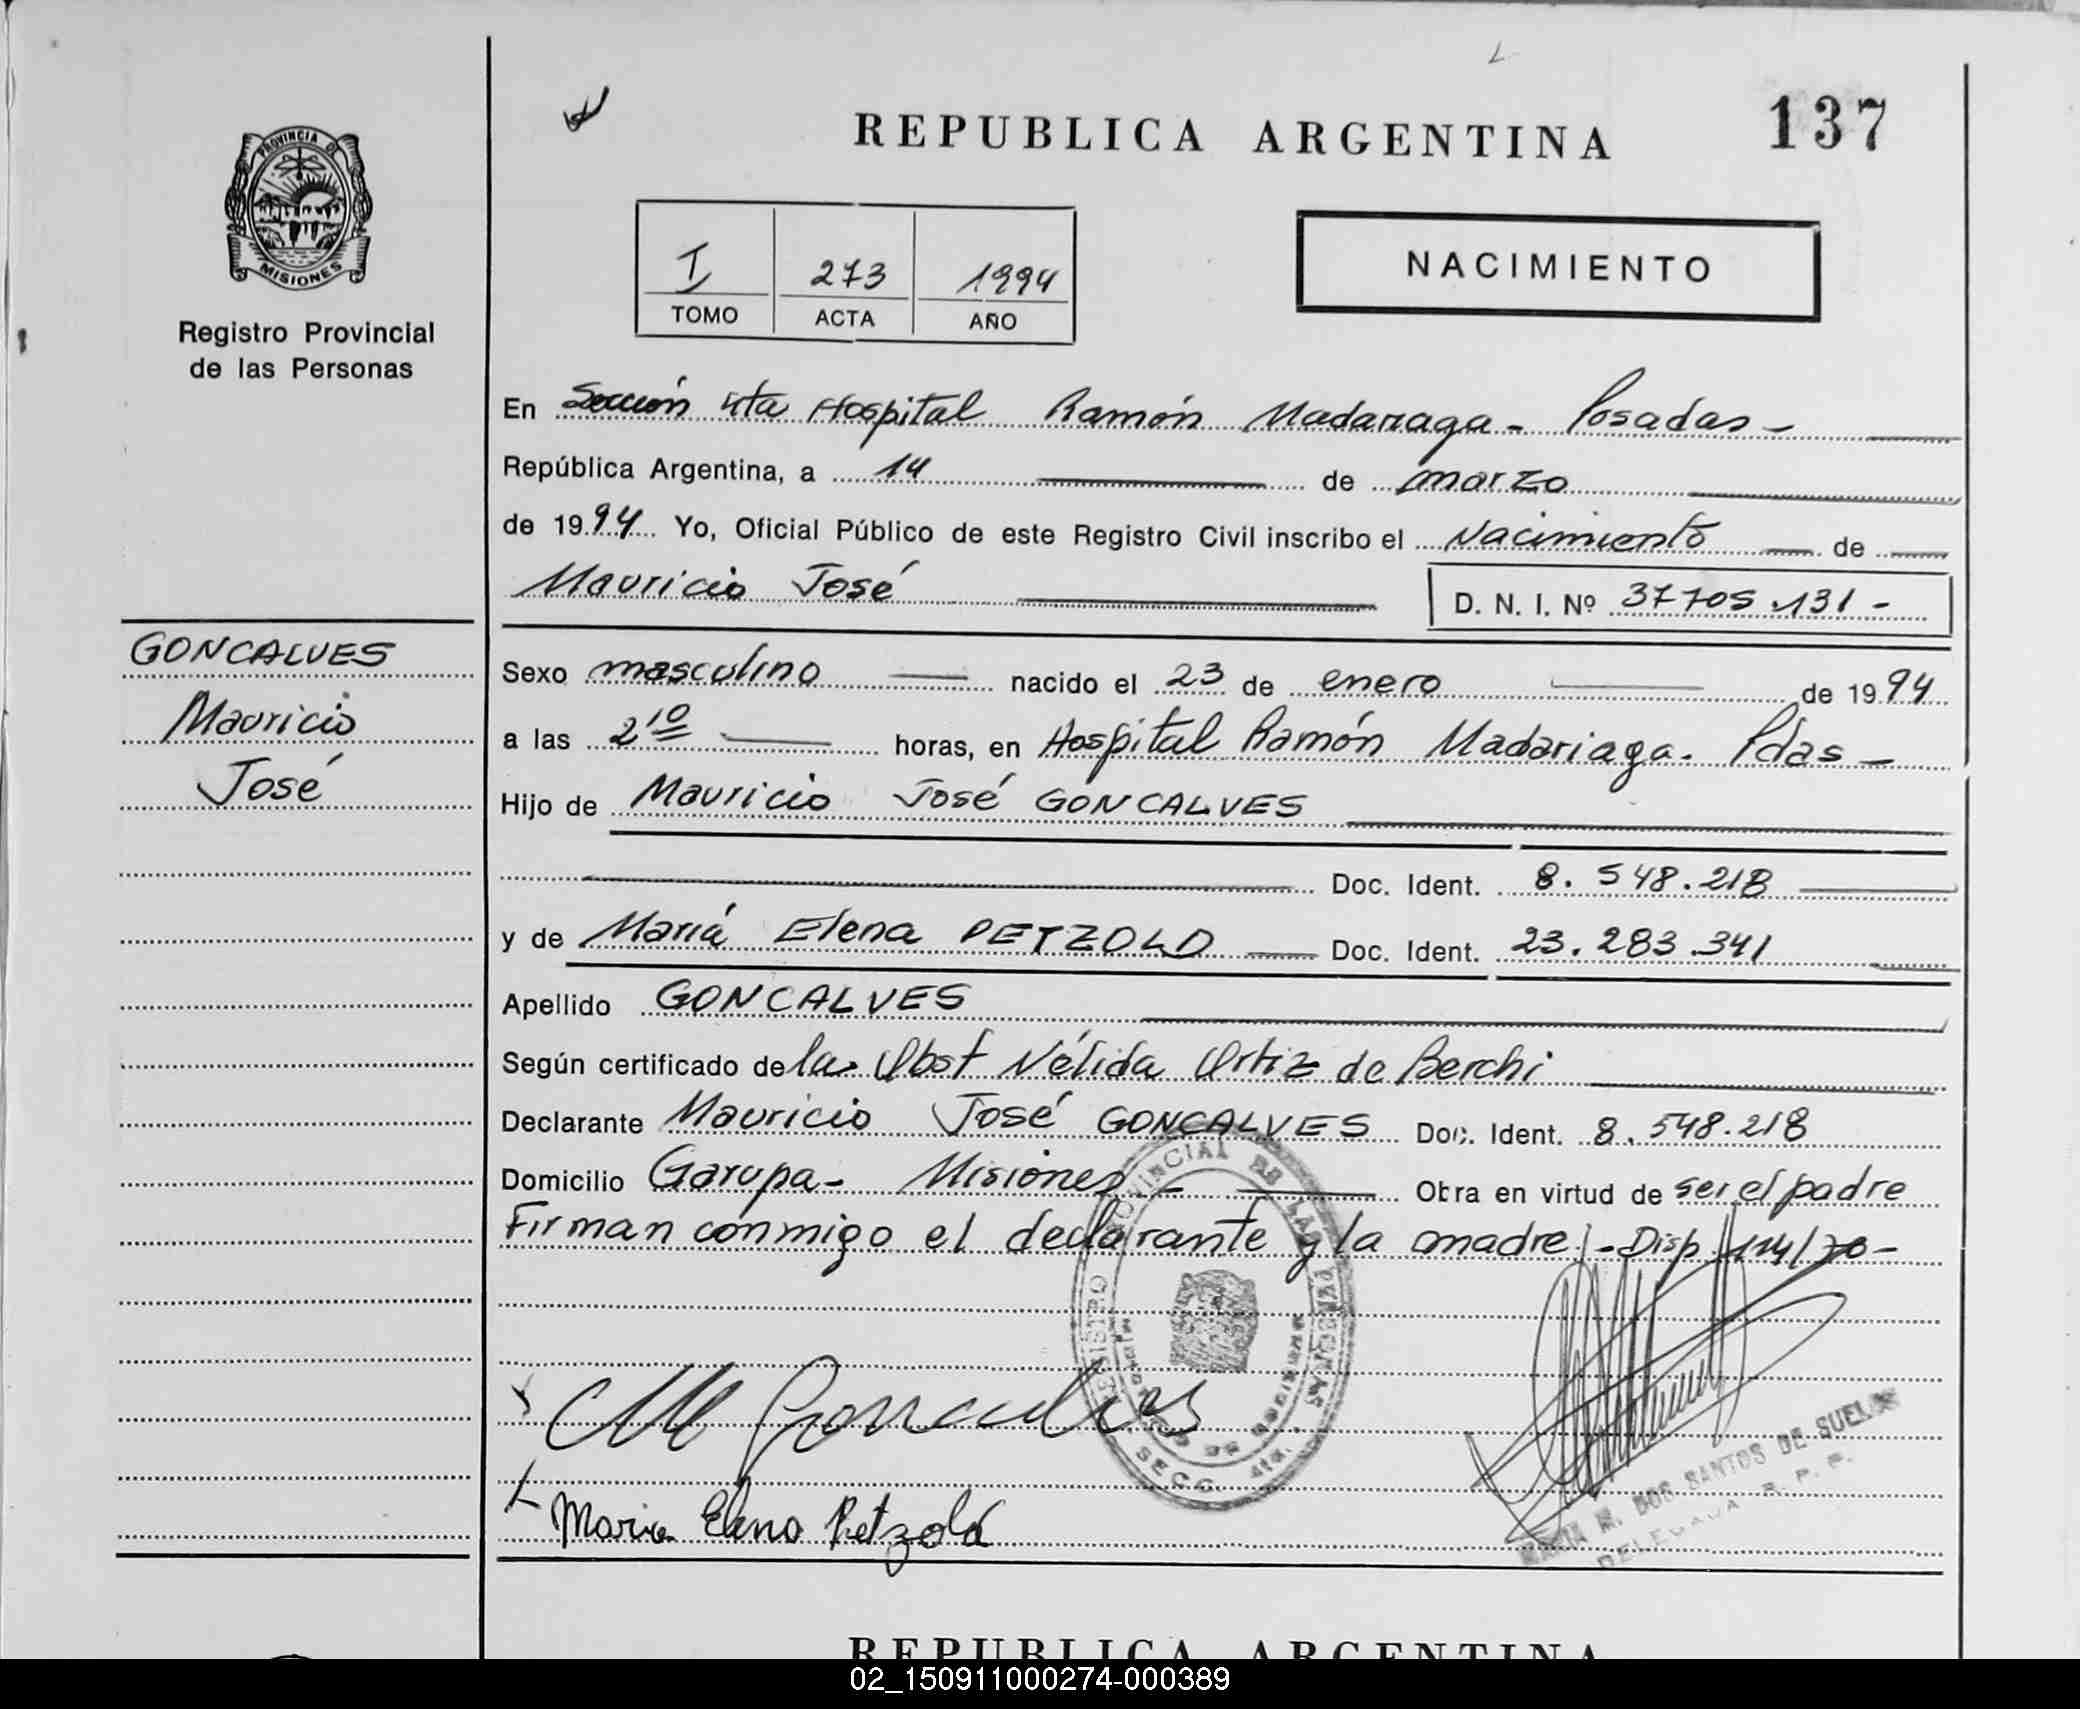 REPUBLICA ARGENTINA
137
PROVINCIA DE
MISIONES
Registro Provincial
de las Personas
I 273 1994
TOMO ACTA AÑO
NACIMIENTO
En Sección 4ta Hospital Ramón Madariaga - Posadas -
República Argentina, a 14 de marzo
de 1994 Yo, Oficial Público de este Registro Civil inscribo el Nacimiento de
Mauricio José D. N. I. Nº 37705.131 -
GONCALVES
Mauricio
José
Sexo masculino nacido el 23 de enero de 1994
a las 2 10 horas, en Hospital Ramón Madariaga. Pdas -
Hijo de Mauricio José GONCALVES
Doc. Ident. 8.548.218
y de María Elena PETZOLD Doc. Ident. 23.283.341
Apellido GONCALVES
Según certificado de la Obst Nélida Ortiz de Berchi
Declarante Mauricio José GONCALVES Doc. Ident. 8.548.218
Domicilio Garupa - Misiones - Obra en virtud de ser el padre
Firman conmigo el declarante y la madre - Disp 114/70 -
REGISTRO PROVINCIAL DE LAS PERSONAS
SECC. 4ta.
M Goncalves
Maria Elena Petzold
M. DOS SANTOS DE
DELEGADA R. P. P.
REPUBLICA ARGENTINA
02_150911000274-000389